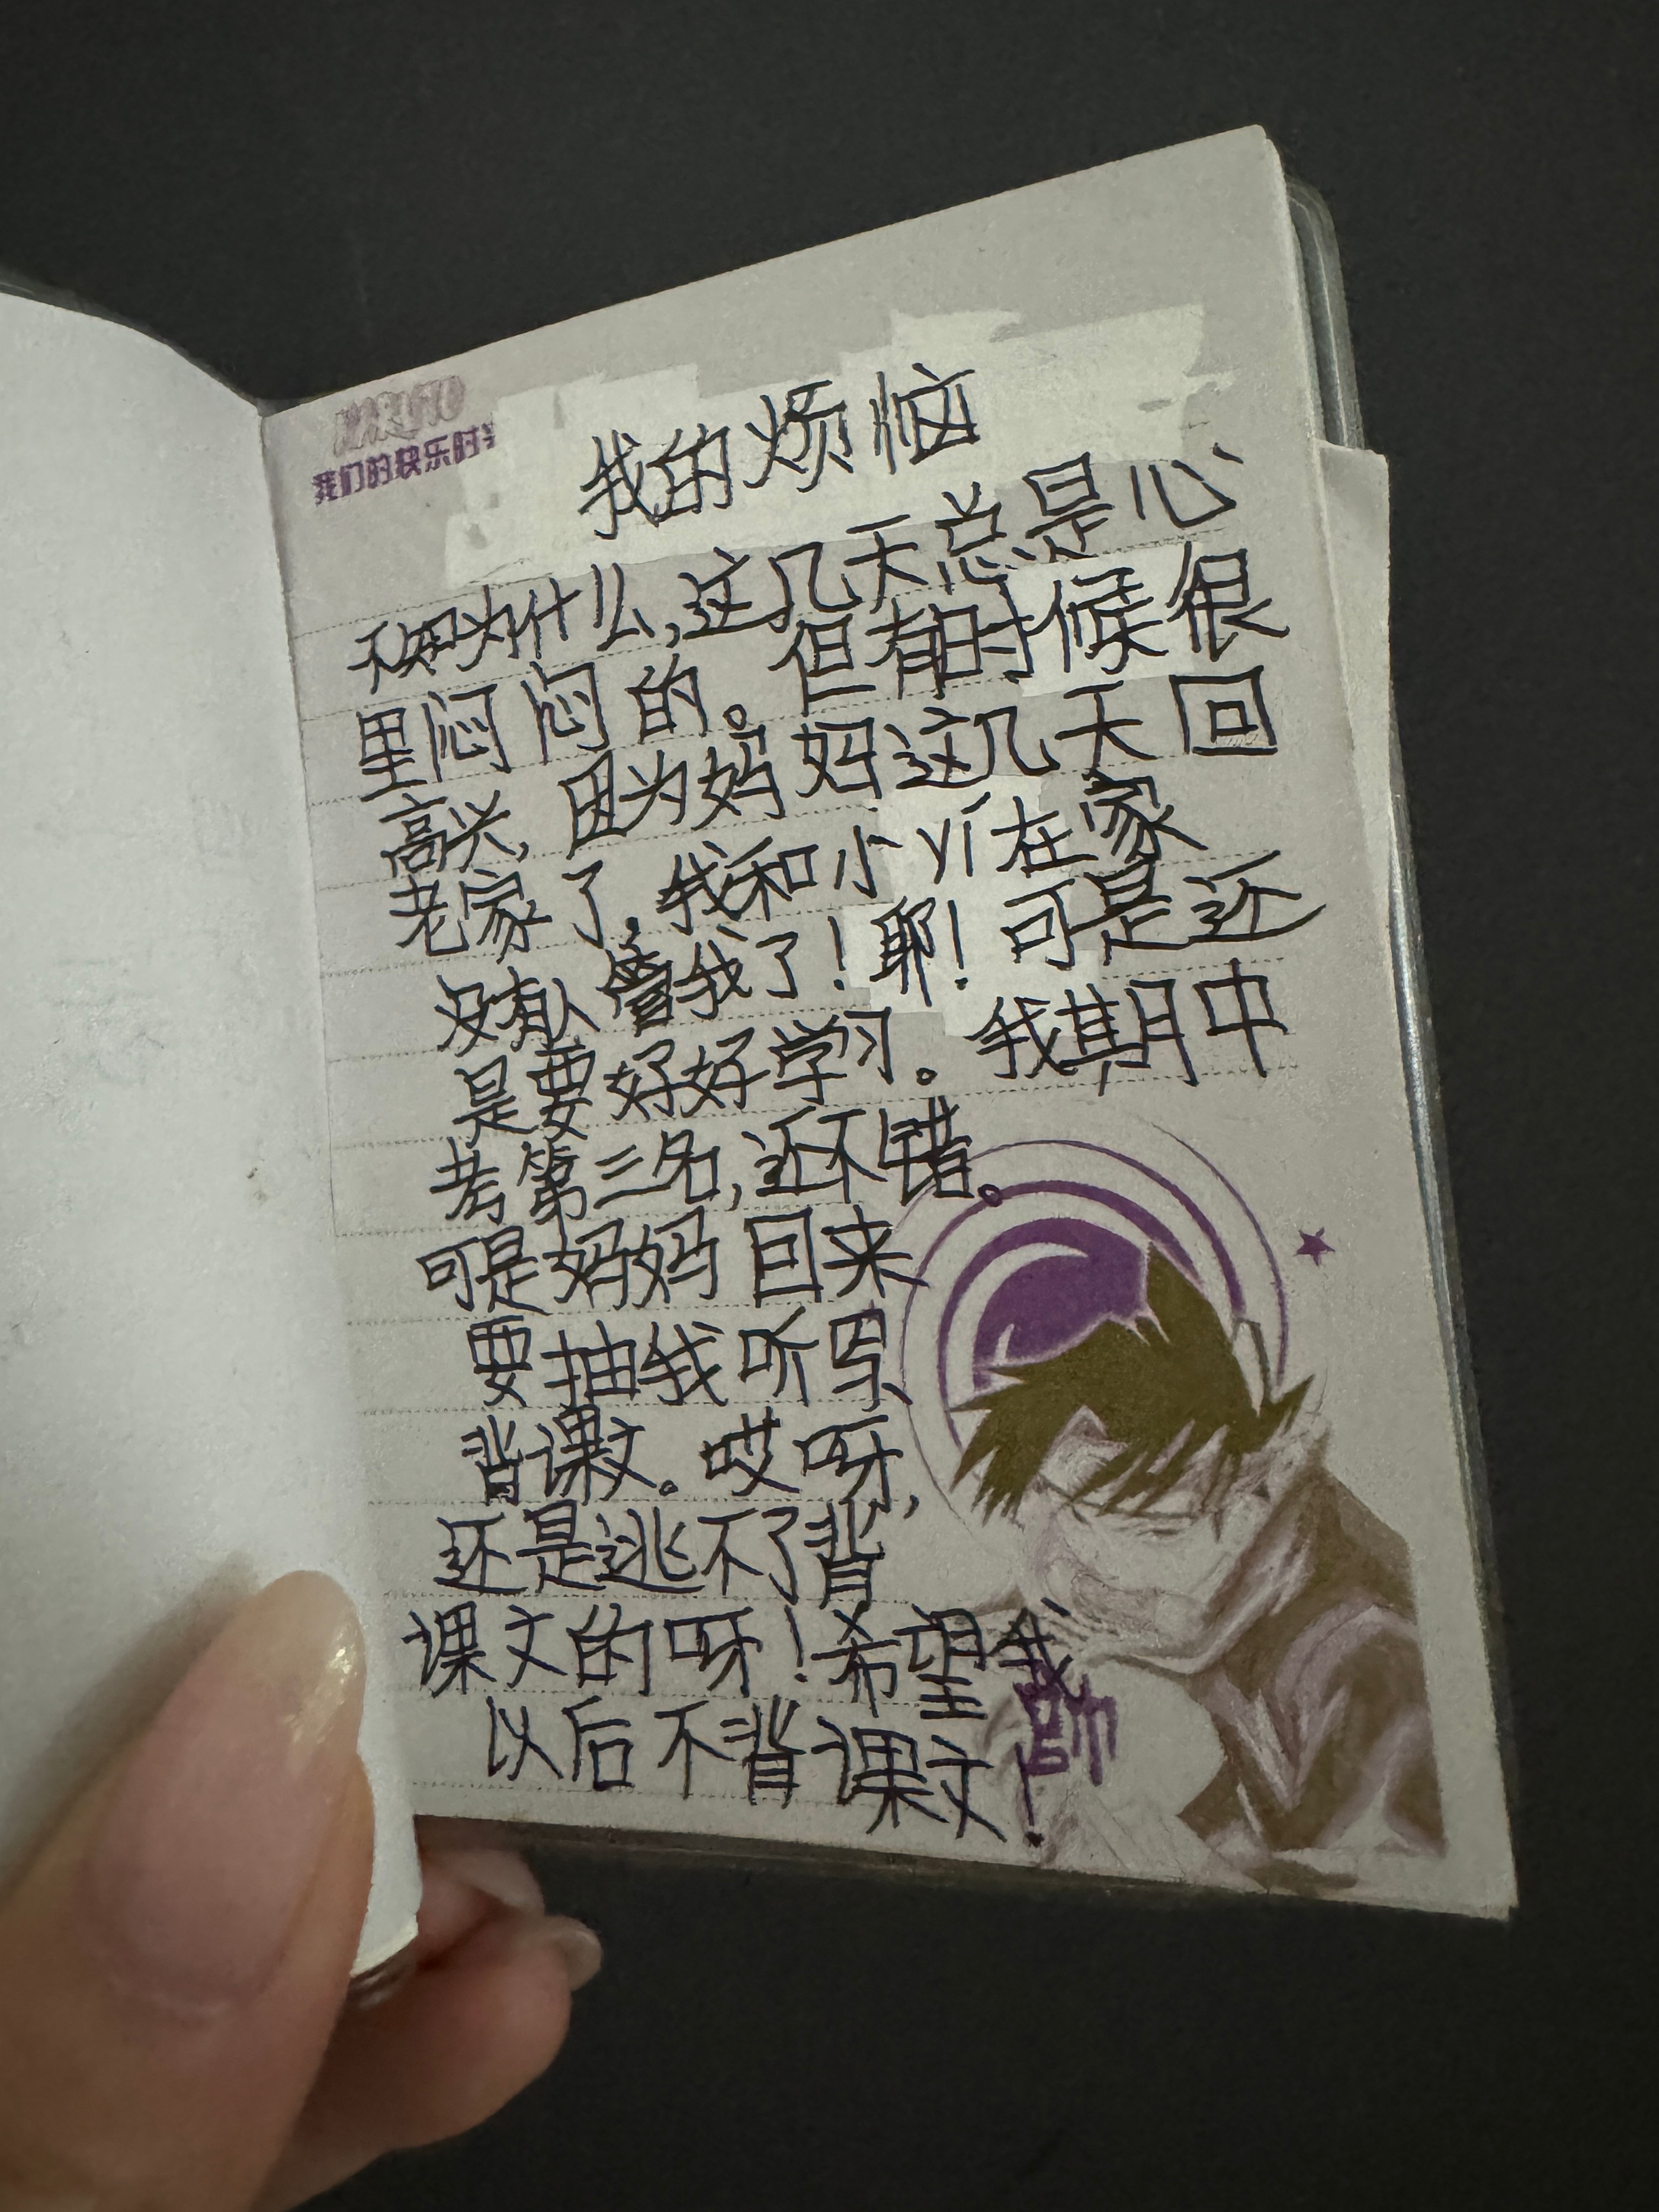 我们的快乐时
我的烦恼
不知为什么,这几天总是心
里闷闷的。但有时候很
高兴,因为妈妈这几天回
老家了,我和小yí在家
没有人管我了!耶!可是还
是要好好学习。我期中
考第三名,还不错。
可是妈妈回来
要抽我听写、
背课文。哎呀,
还是逃不了背
课文的呀!希望我
以后不背课文!
帅